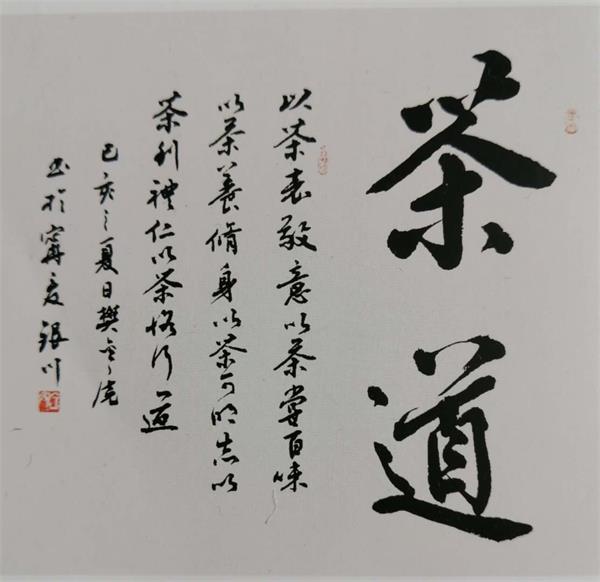 茶道
以茶表敬意以茶嘗百味
以茶養脩身以茶可明志以
茶利禮仁以茶恪行道
己亥之夏日樊
书於寧夏銀川